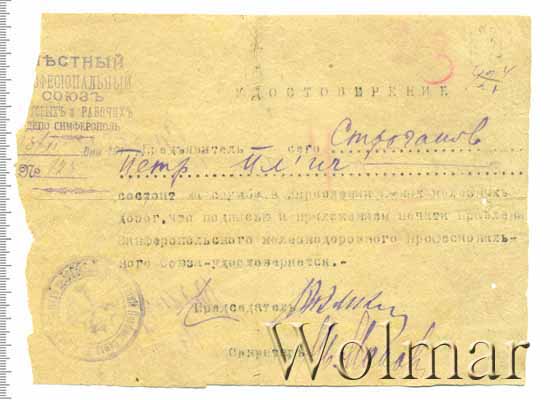 МѢСТНЫЙ
ПРОФЕСІОНАЛЬНЫЙ
СОЮЗЪ
и РАБОЧИХЪ
ДЕПО СИМФЕРОПОЛЬ
№ 125
УДОСТОВЕРЕНИЕ
Предъявитель сего Строганов
Петр Ильич
состоит на службе в Управлении
дорог, что подписью и приложением печати правления
Симферопольского железнодорожного професиональ-
ного Союза-удостоверяется.-
Председатель
Секретарь
Wolmar